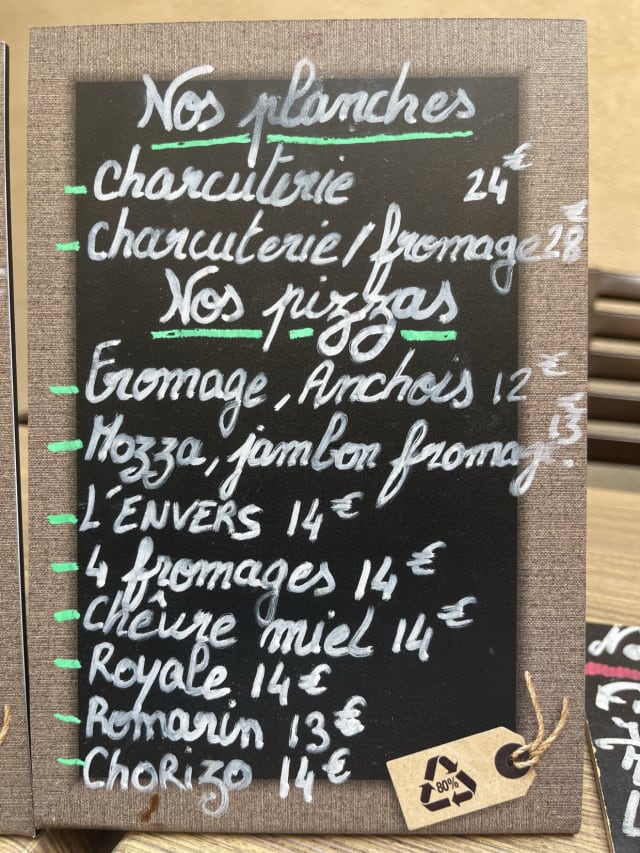 Nos planches
- Charcuterie 24€
- Charcuterie / fromage 28€
Nos pizzas
- Fromage, Anchois 12€
- Mozza, jambon fromage. 13€
- L'ENVERS 14€
- 4 fromages 14€
- Chêvre miel 14€
- Royale 14€
- Romarin 13€
- Chorizo 14€
80%